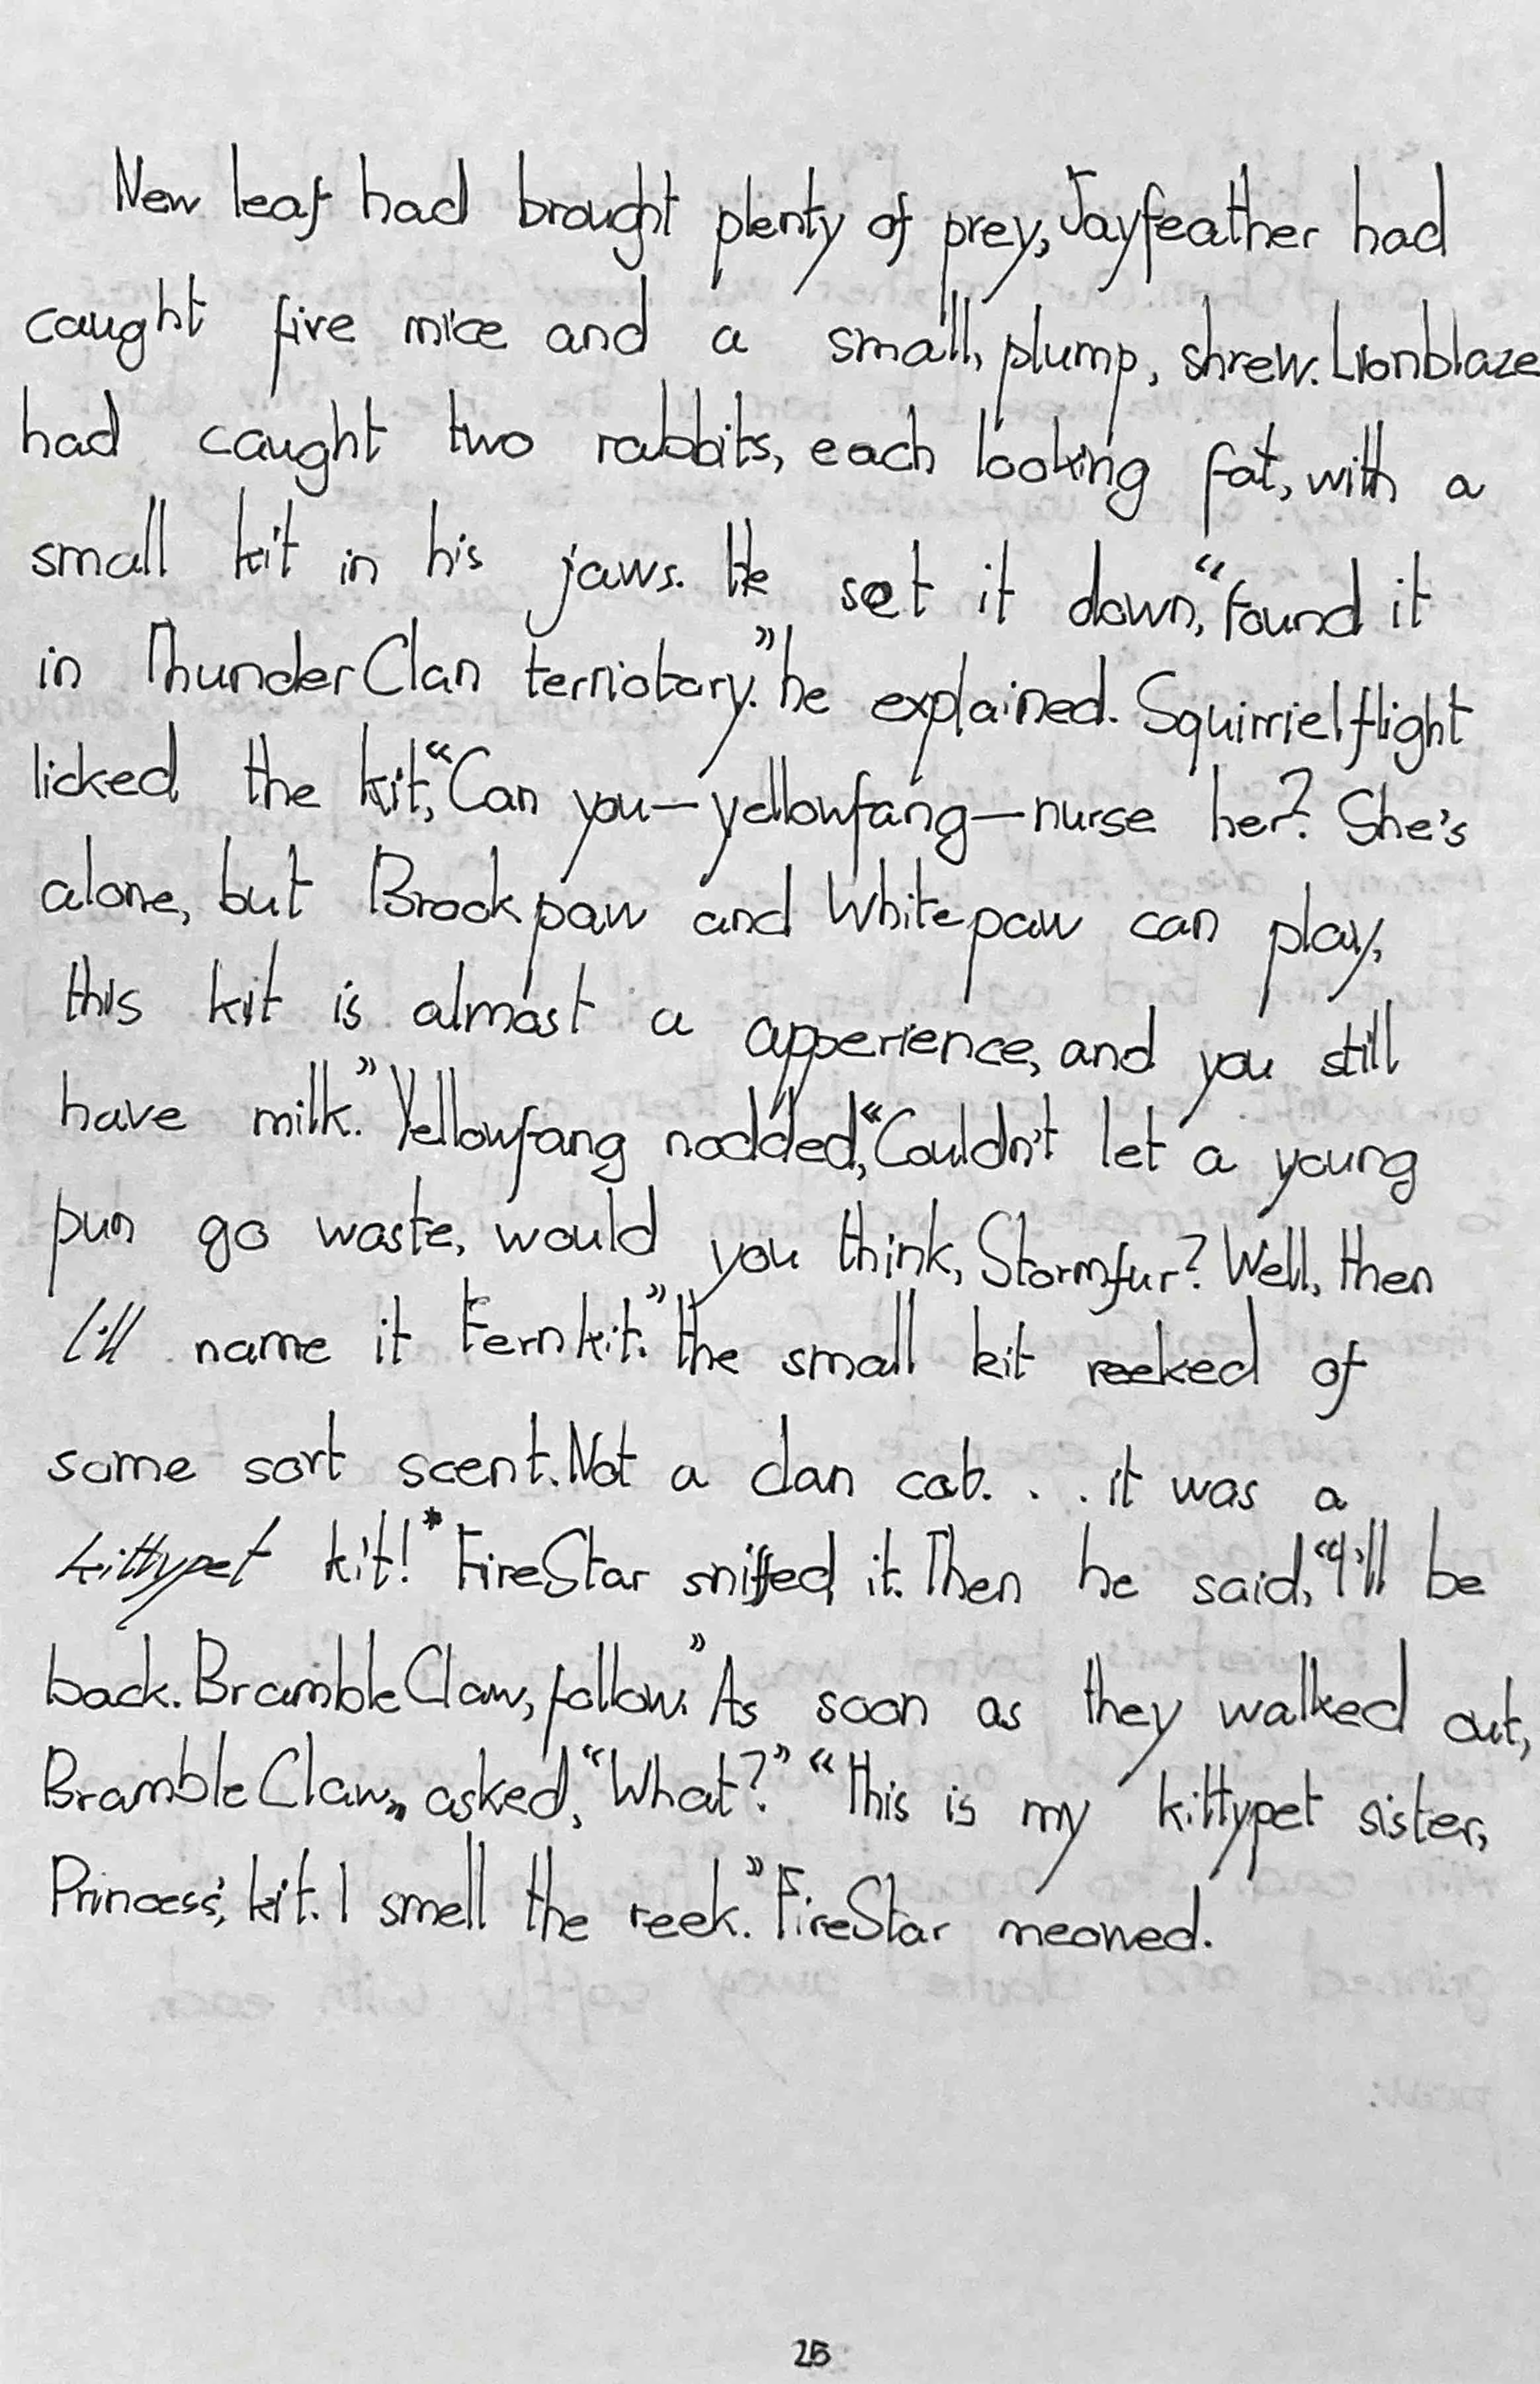 New leaf had brought plenty of prey, Jayfeather had
caught five mice and a small, plump, shrew. Lionblaze
had caught two rabbits, each looking fat, with a
small kit in his jaws. He set it down, “Found it
in ThunderClan terriotory.” he explained. Squirrielflight
licked the kit, “Can you—yellowfang—nurse her? She's
alone, but Brookpaw and Whitepaw can play,
this kit is almost a apperience, and you still
have milk.” Yellowfang nodded, “Couldn't let a young
pun go waste, would you think, Stormfur? Well, then
I'll name it Fernkit.” The small kit reeked of
some sort scent. Not a clan cat. . . it was a
kittypet kit!* FireStar sniffed it. Then he said, “I'll be
back. BrambleClaw, follow.” As soon as they walked out,
BrambleClaw, asked, “What?” “This is my kittypet sister,
Princess', kit. I smell the reek.” FireStar meowed.
25